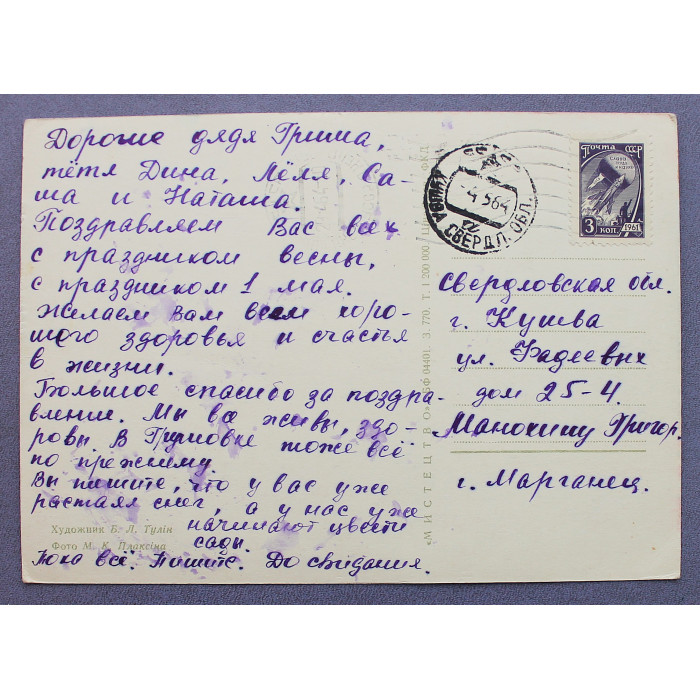 Дорогие дядя Гриша,
тётя Дина, Лёля, Са-
ша и Наташа.
Поздравляем Вас всех
с праздником весны,
с праздником 1 мая.
Желаем Вам всем хоро-
шого здоровья и счастья
в жизни.
Большое спасибо за поздра-
вление. Мы все живы, здо-
ровы. В Грушовке тоже всё
по прежнему.
Вы пишите, что у вас уже
растаял снег, а у нас уже
начинают цвести
сады.
Пока всё. Пишите. До свидания.
Художник Б. Л. Тулін
Фото М. К. Плаксіна
«МИСТЕЦТВО» БФ 04401. З. 770. Т. 1 200 000
КУШВА СВЕРДЛ. ОБЛ.
-4 5 64
Почта СССР
3 коп. 1961
Свердловская обл.
г. Кушва
ул. Фадеевых
дом 25-4.
Манохину Григор.
г. Марганец.